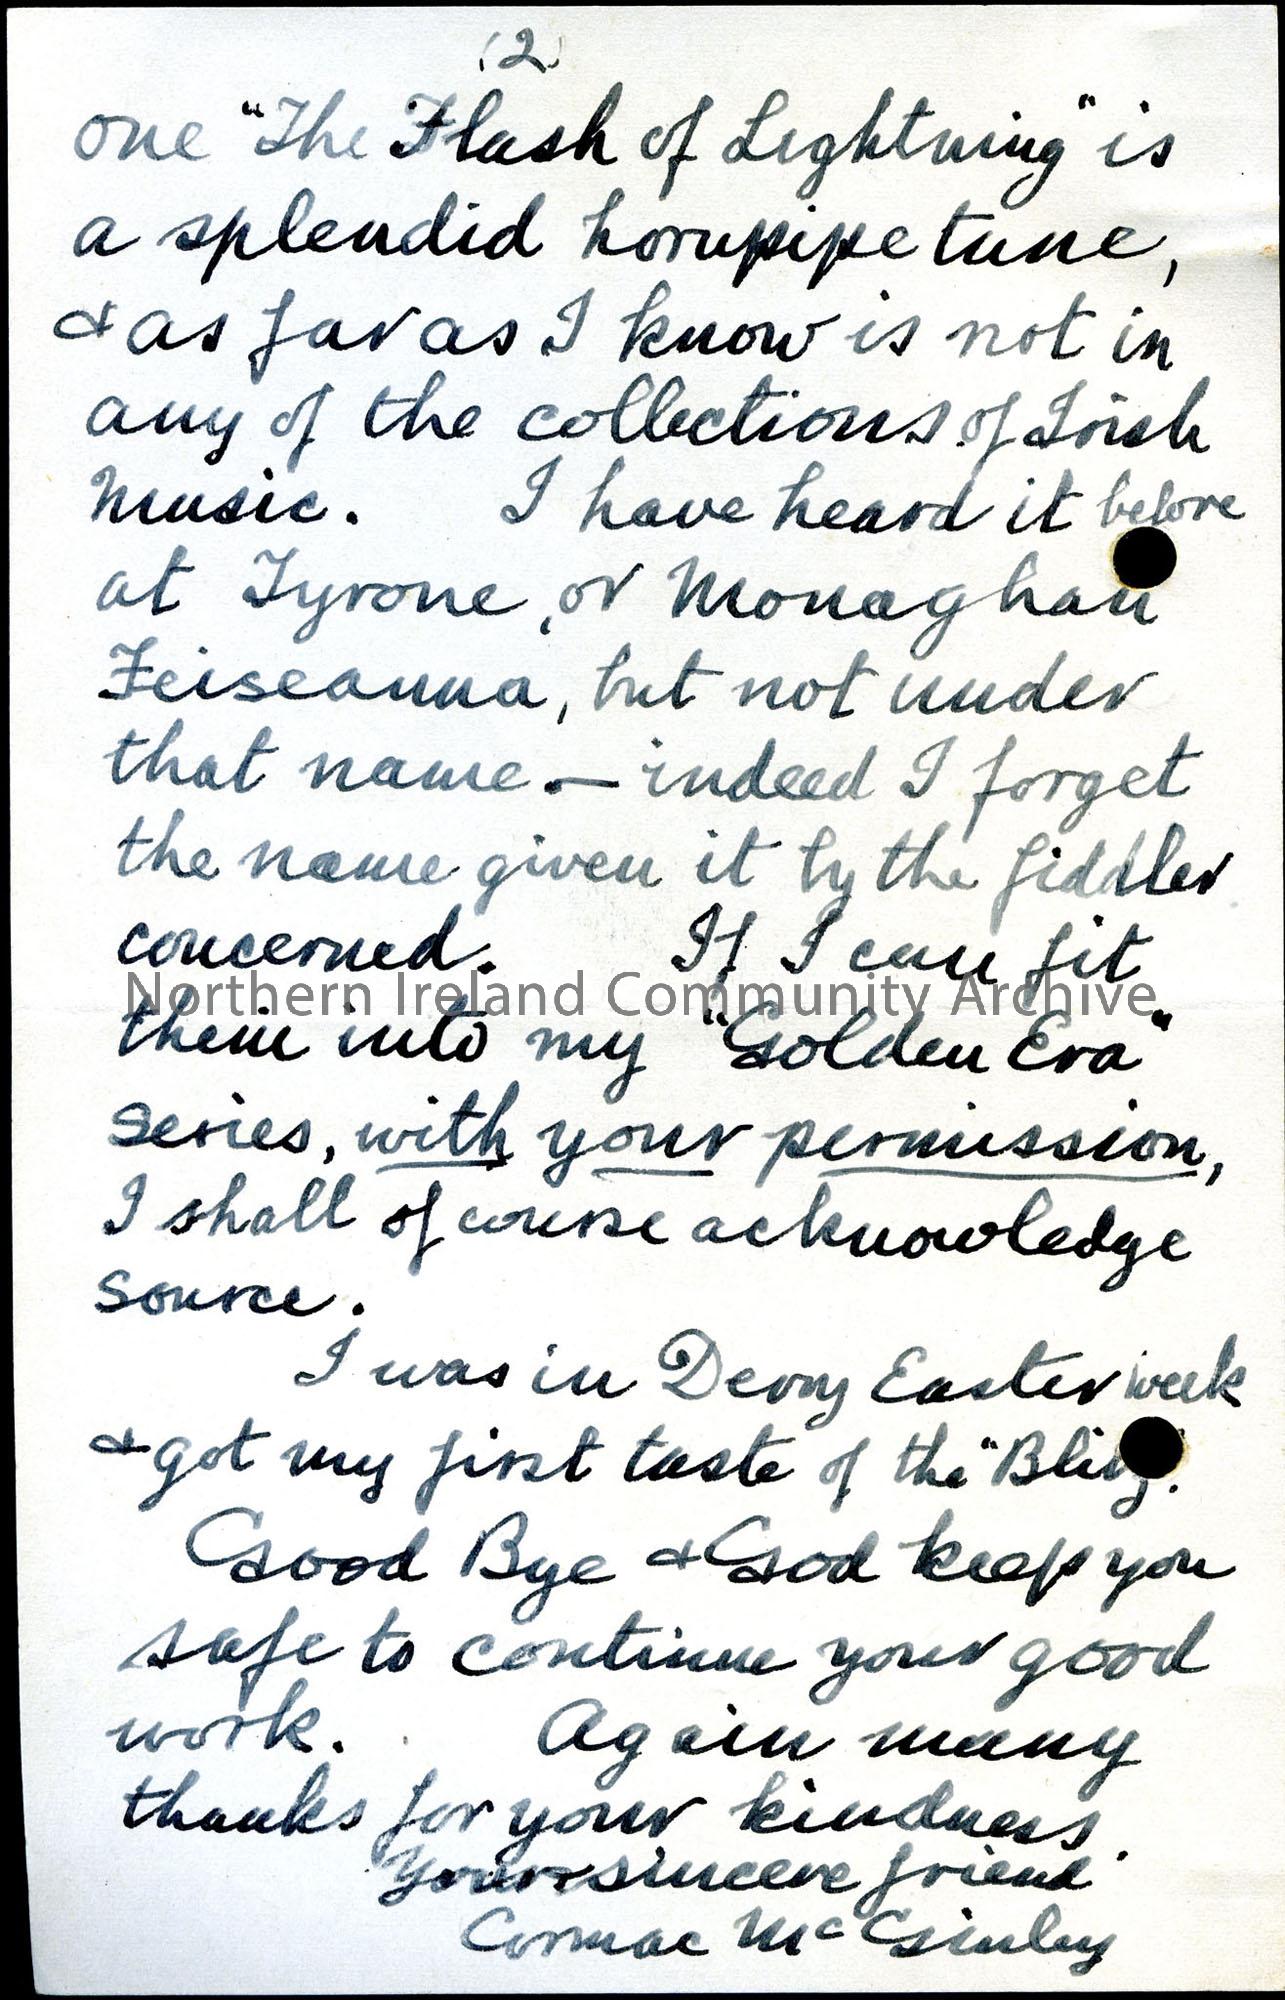 (2)
one "The Flash of Lightning" is
a splendid hornpipe tune,
& as far as I know is not in
any of the collections of Irish
Music. I have heard it before
at Tyrone, or Monaghan
Feiseanna, but not under
that name — indeed I forget
the name given it by the fiddler
concerned. If I can fit
Northern Ireland Community Archive
them into my "Golden Era"
series, with your permission,
I shall of course acknowledge
source.
I was in Derry Easter week
& got my first taste of the "Blitz".
Good Bye & God keep you
safe to continue your good
work. Again many
thanks for your kindness.
Your sincere friend
Cormac McGinley